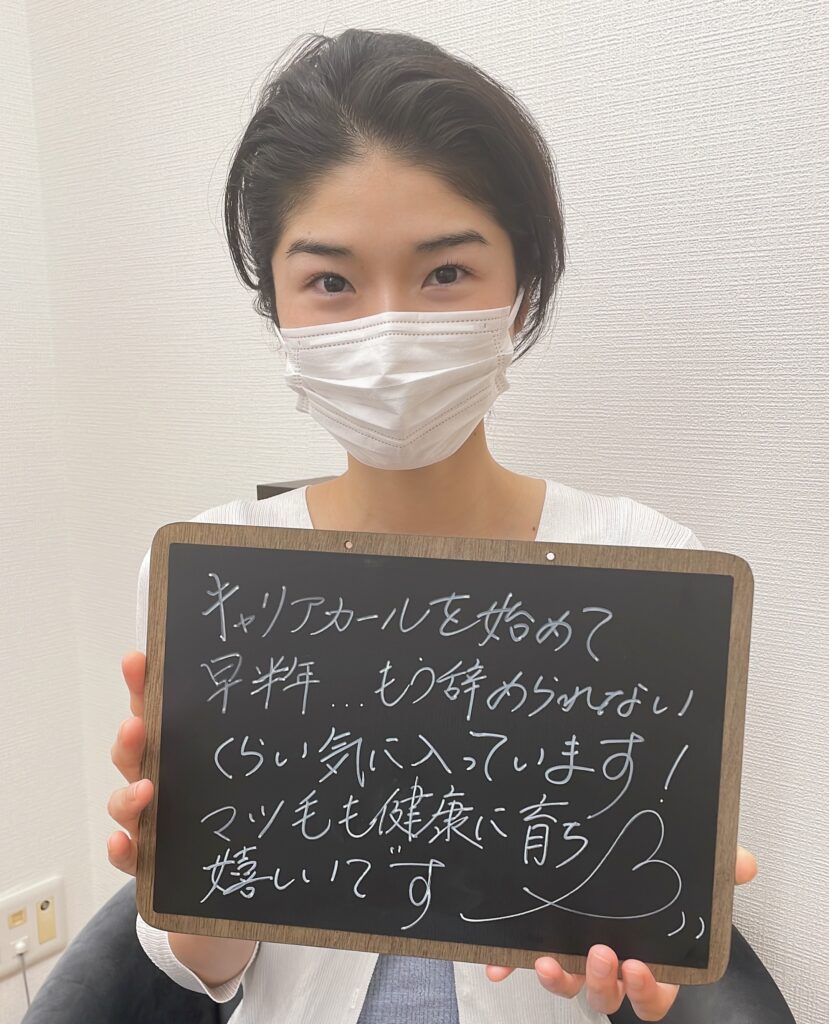 キャリアカールを始めて
早半年...もう辞められない
くらい気に入っています!
マツ毛も健康に育ち
嬉しいです